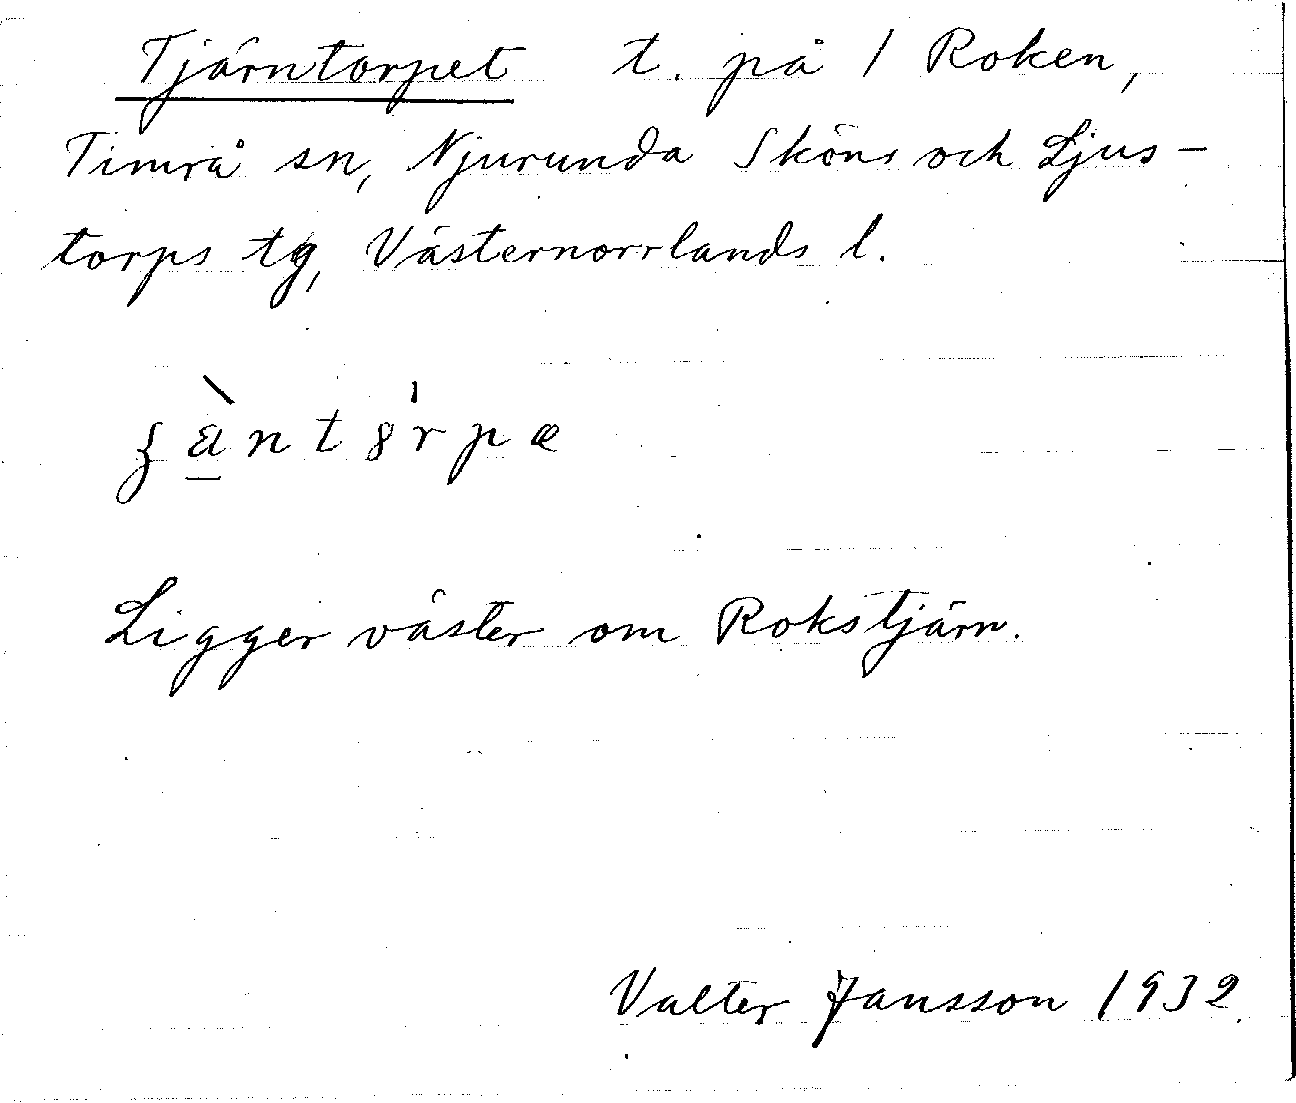 Tjärntorpet t. på 1 Roken,
Timrå sn, Njurunda Sköns och Ljus-
torps tg, Västernorrlands l.
Ligger väster om Rokstjärn.
Valter Jansson 1932.